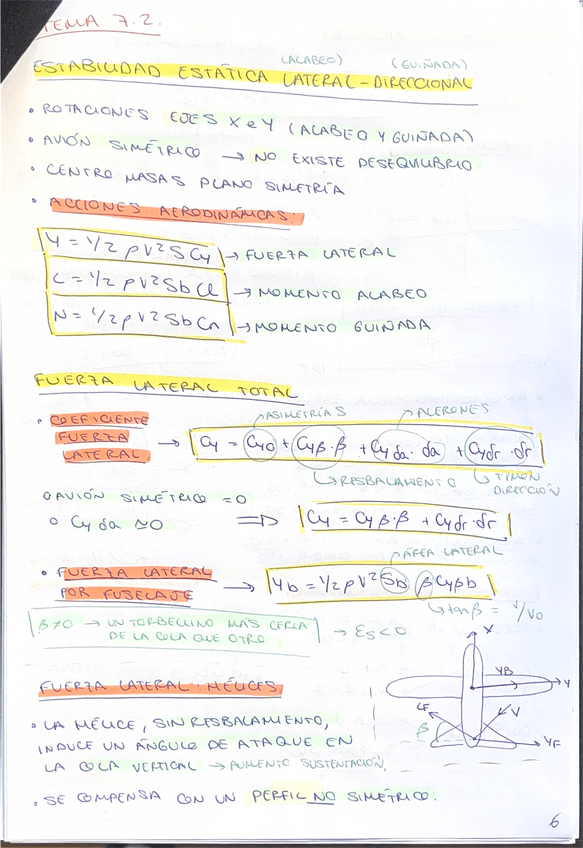 TEMA 7.2.
(ALABEO) (GUIÑADA)
ESTABILIDAD ESTÁTICA LATERAL-DIRECCIONAL
• ROTACIONES EJES X e Y (ALABEO Y GUIÑADA)
• AVIÓN SIMÉTRICO → NO EXISTE DESEQUILIBRIO
• CENTRO MASAS PLANO SIMETRÍA
• ACCIONES AERODINÁMICAS.
Y = 1/2 ρ V² S Cy → FUERZA LATERAL
L = 1/2 ρ V² S b Cl → MOMENTO ALABEO
N = 1/2 ρ V² S b Cn → MOMENTO GUIÑADA
FUERZA LATERAL TOTAL
ASIMETRÍAS ALERONES
• COEFICIENTE FUERZA LATERAL → Cy = Cy0 + Cyβ·β + Cyδa·δa + Cyδr·δr
RESBALAMIENTO TIMÓN DIRECCIÓN
○ AVIÓN SIMÉTRICO = 0
○ Cyδa ≃ 0 ⇒ Cy = Cyβ·β + Cyδr·δr
ÁREA LATERAL
• FUERZA LATERAL POR FUSELAJE → Yb = 1/2 ρ V² Sb β Cyβb
tanβ = V/V0
β≠0 → UN TORBELLINO MÁS CERCA
DE LA COLA QUE OTRO → εs < 0
X
FUERZA LATERAL HÉLICES
YB
Y
LF
V
• LA HÉLICE, SIN RESBALAMIENTO,
INDUCE UN ÁNGULO DE ATAQUE EN
β
YF
LA COLA VERTICAL → AUMENTO SUSTENTACIÓN.
• SE COMPENSA CON UN PERFIL NO SIMÉTRICO.
6